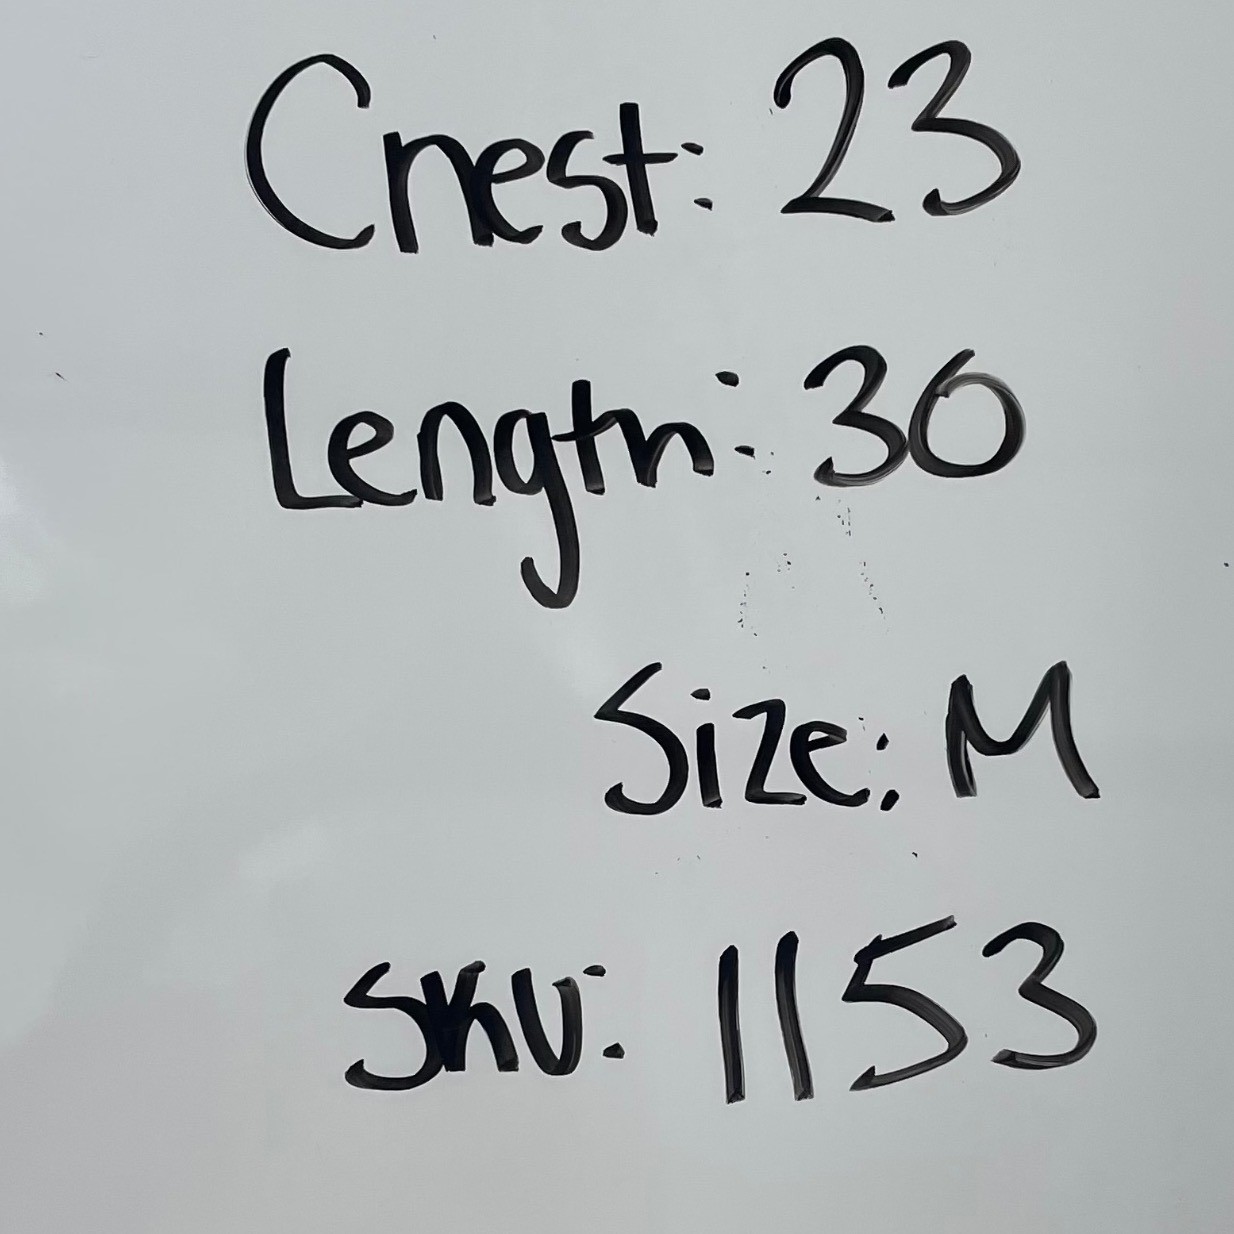 Chest: 23
Length: 30
Size: M
SKU: 1153